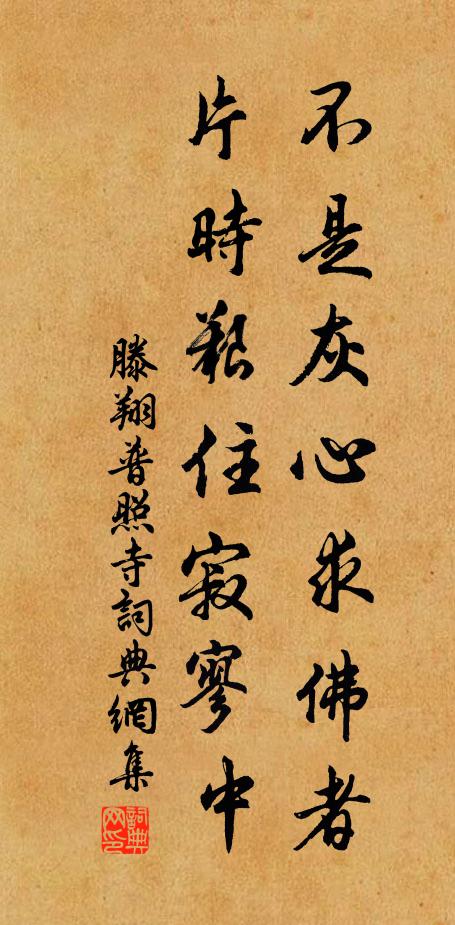 不是灰心求佛者
片時難住寂寥中
滕翔普照寺詞典網集
詞典网印